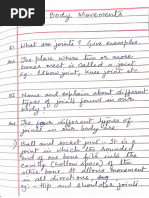 Body Movements
Q1 What are joints? Give examples.
Ans The place where two or more
bones meet is called a joint
eg: Elbow joint, Knee joint etc.
Q2 Name and explain about different
types of joints found in our own
body.
Ans The four different types of
joints in our body are:
i) Ball and socket joint:- It is a
joint in which the rounded
end of one bone fits into the
cavity (hollow space) of the
other bone. It allows movement
in all directions.
eg - Hip and shoulder joints.